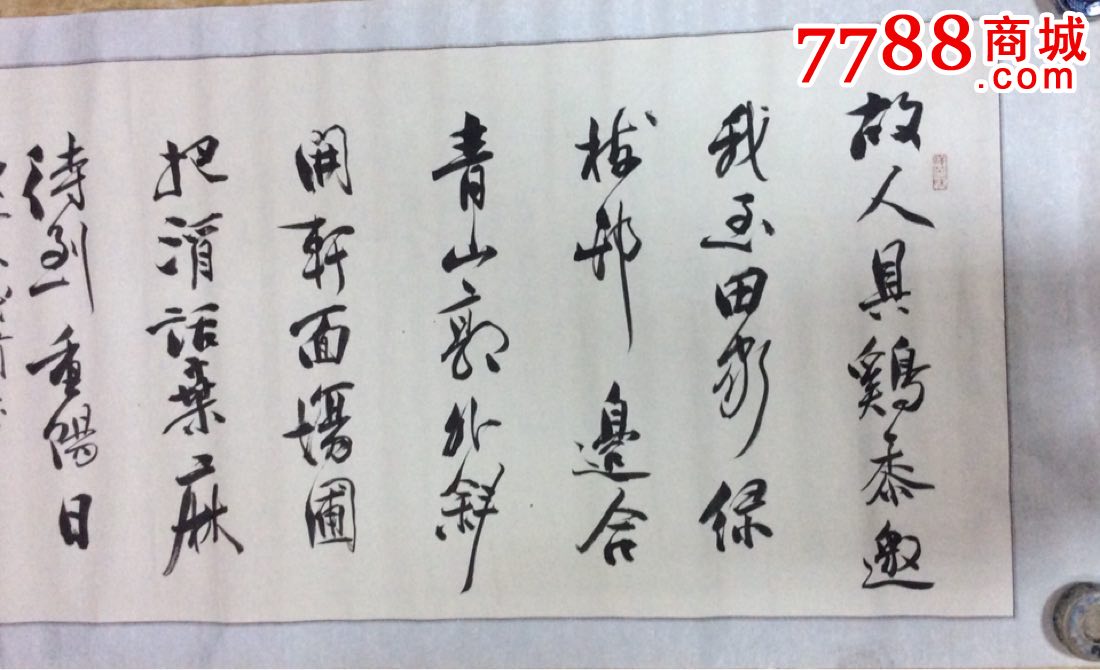 7788商城
.com
故人具鷄黍邀
我至田家綠
樹邨邊合
青山郭外斜
開軒面場圃
把酒話桑麻
待到重陽日